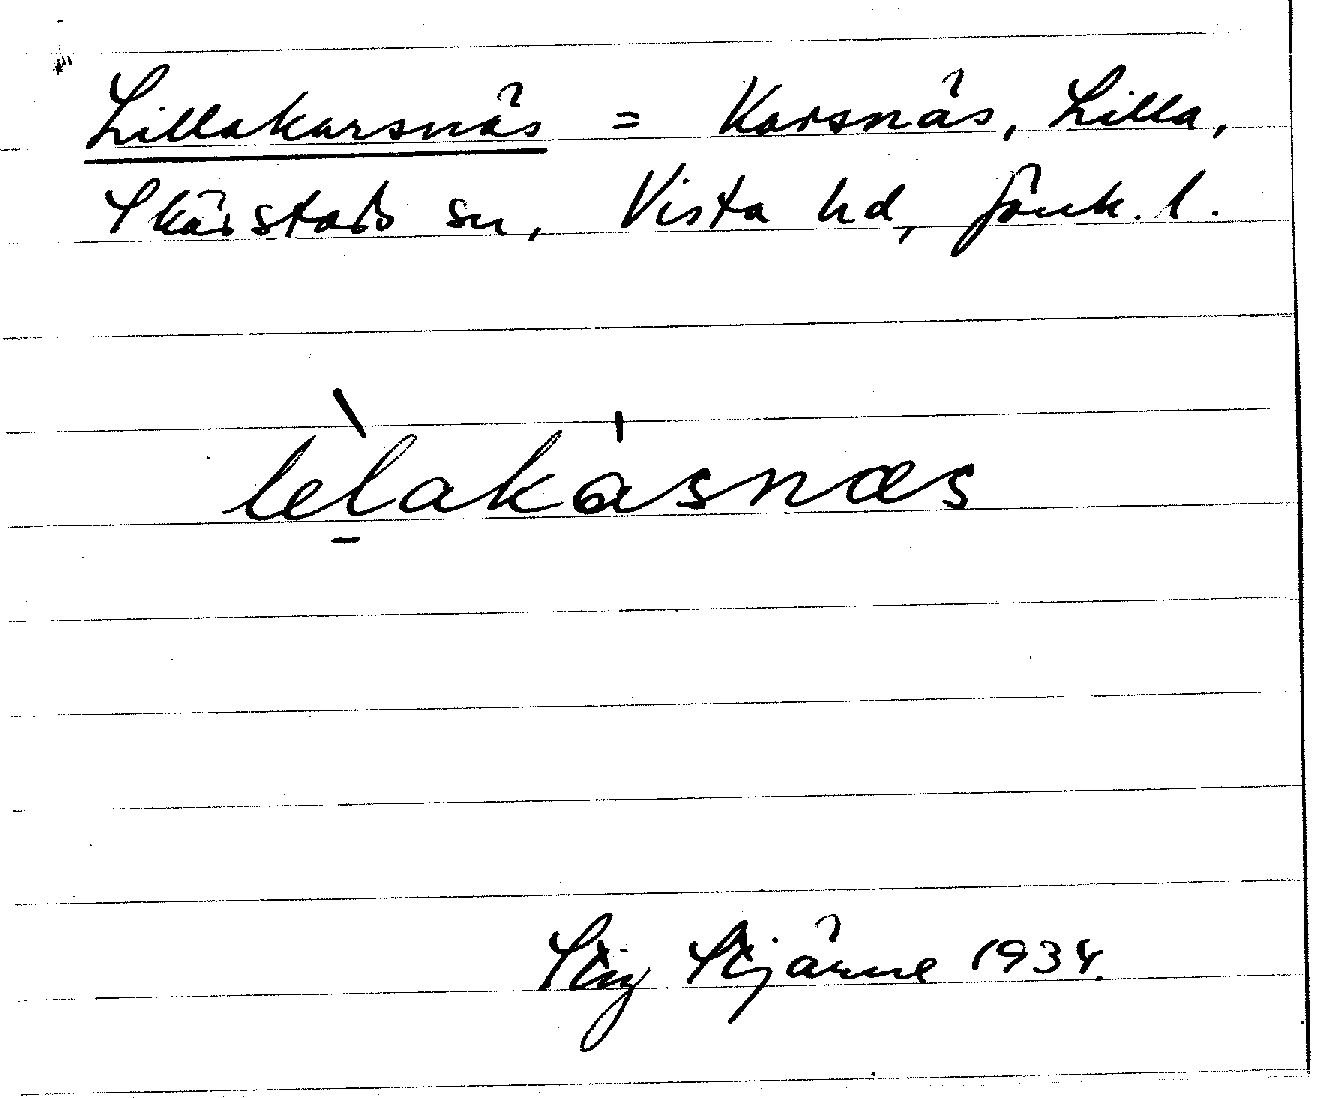 Lillakarsnäs = Karsnäs, Lilla,
Skärstads sn, Vista hd, Jönk. l.
lèl̠akásnæs
Stig Stjärne 1934.